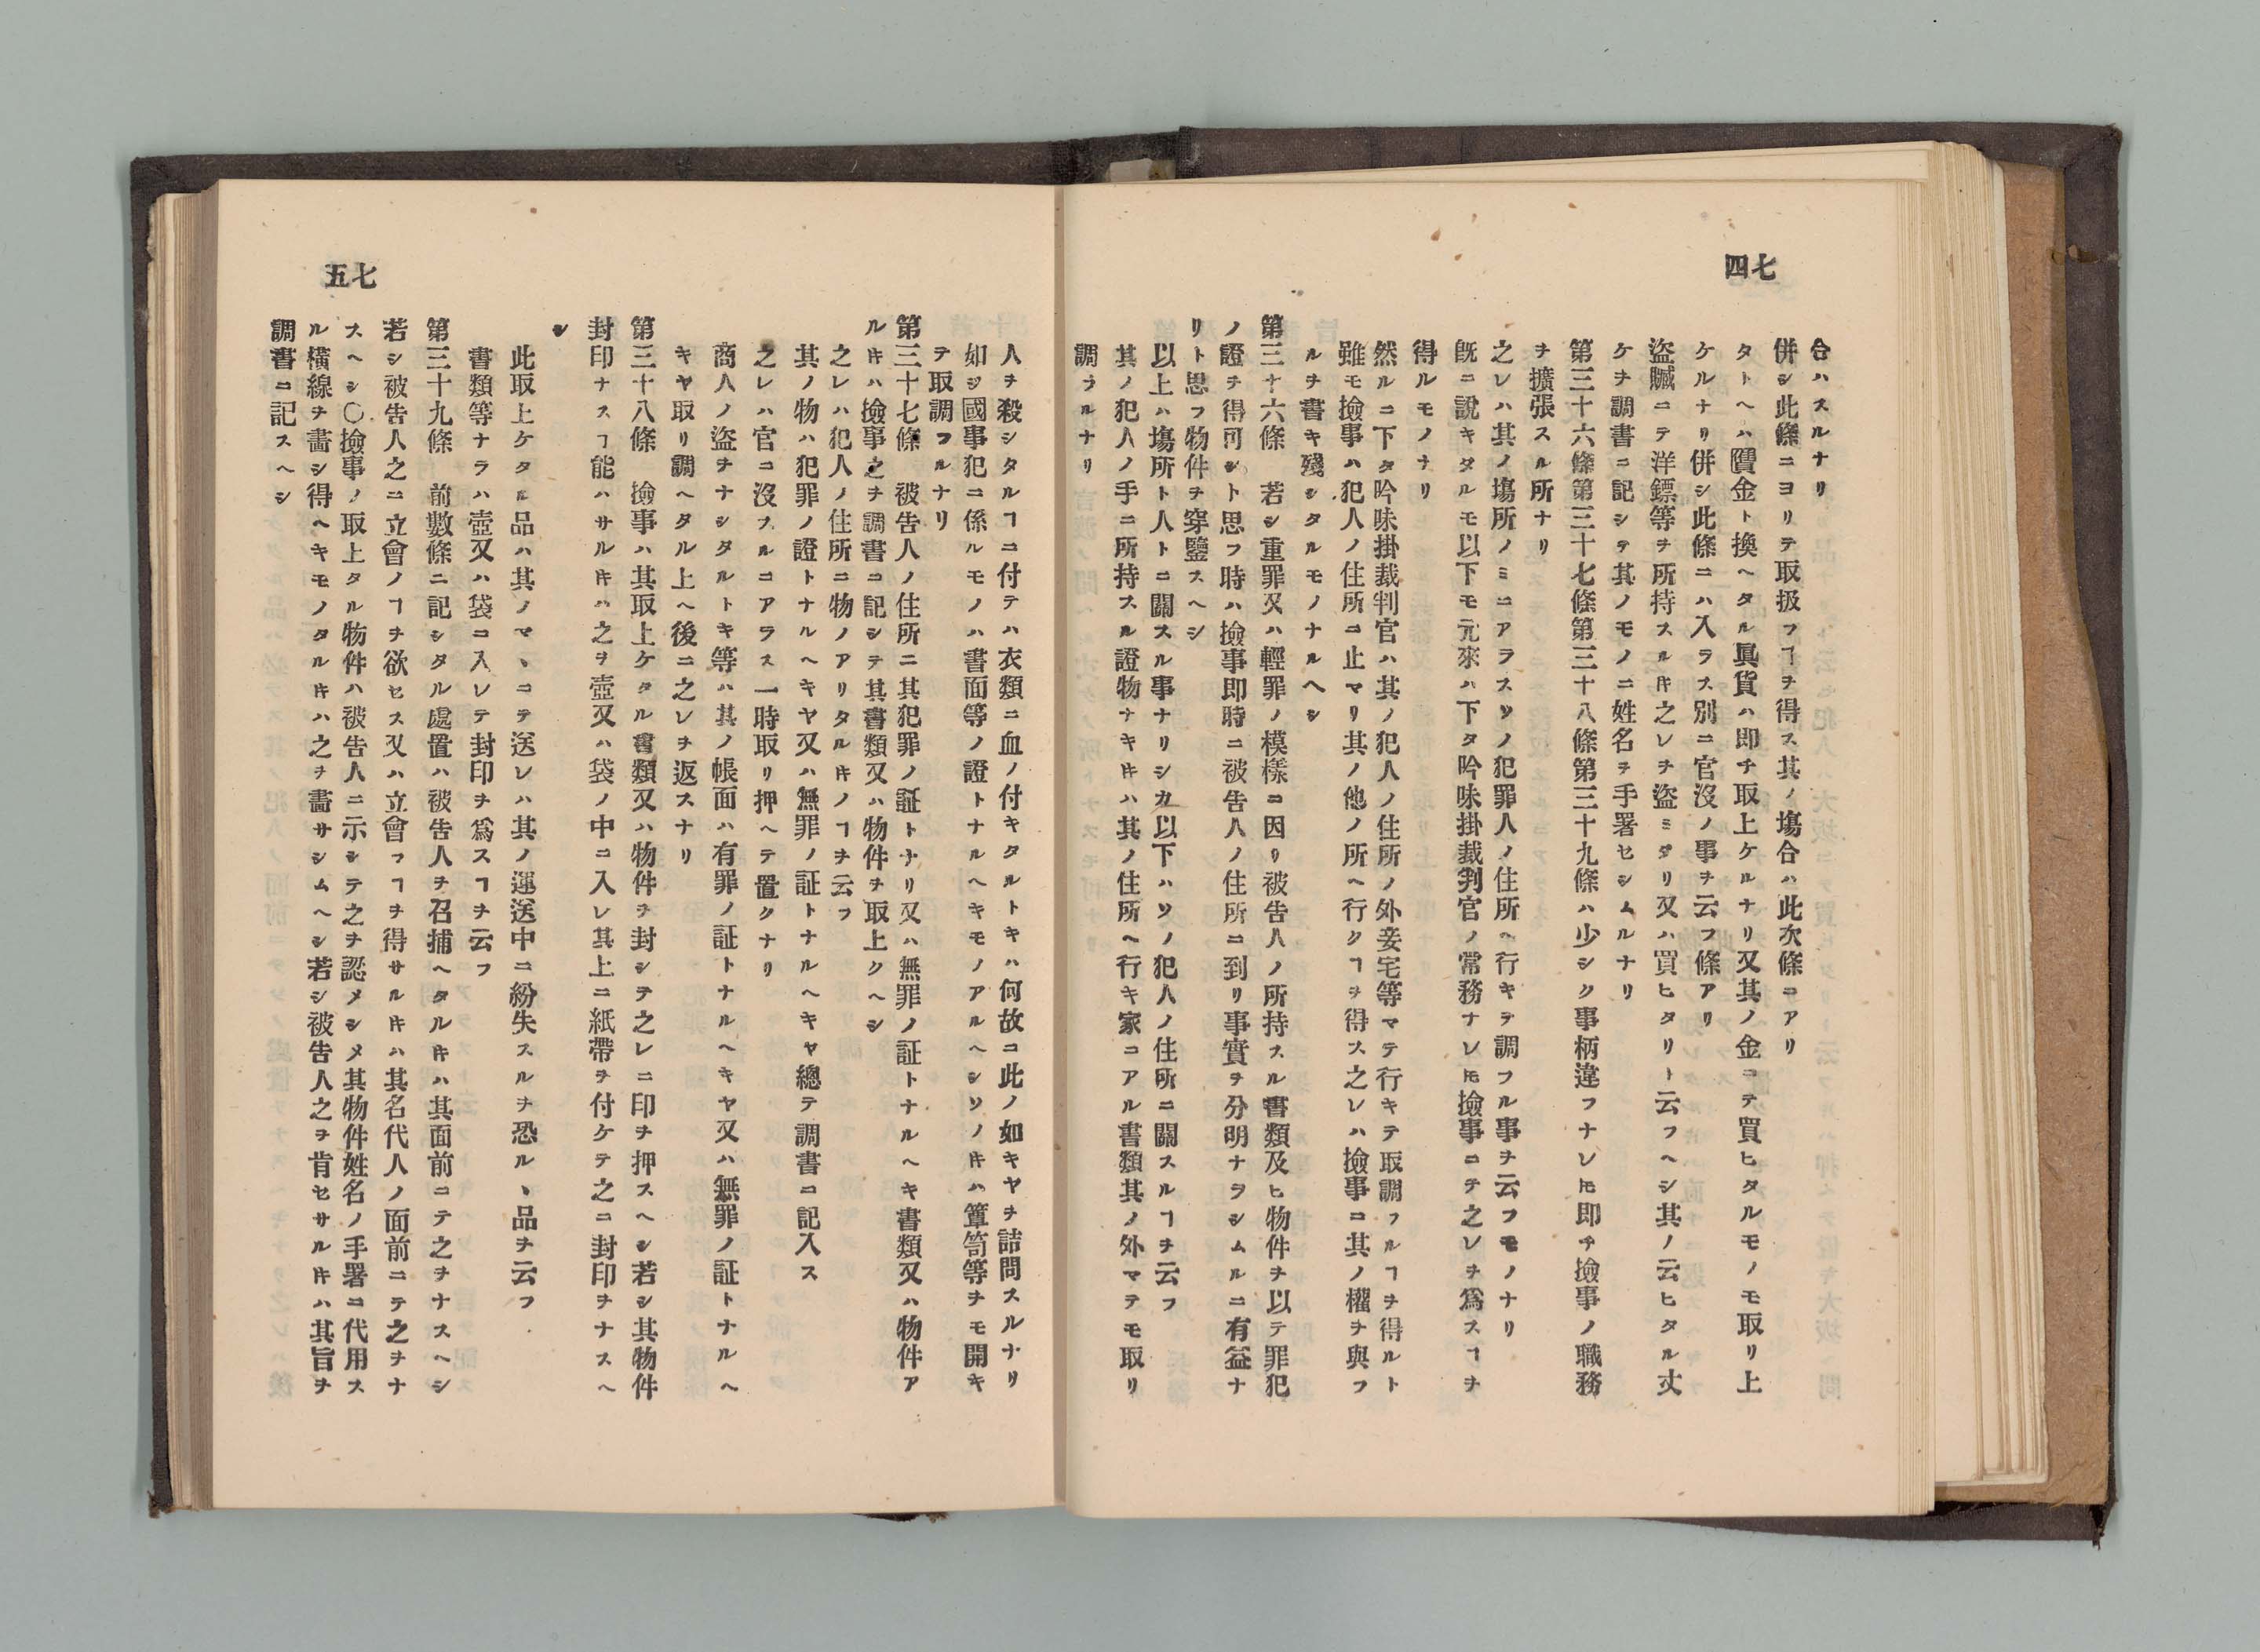 七四
合ハスルナリ
併シ此條ニヨリテ取扱フヿヲ得ス其ノ塲合ハ此次條ニアリ
タトヘハ贋金ト換ヘタル眞貨ハ即チ取上ケルナリ又其ノ金ニテ買ヒタルモノモ取リ上
ケルナリ併シ此條ニハ入ラス別ニ官沒ノ事ヲ云フ條アリ
盜贓ニテ洋鏢等ヲ所持スル𪜈之レヲ盜ミタリ又ハ買ヒタリト云フヘシ其ノ云ヒタル丈
ケヲ調書ニ記シテ其ノモノニ姓名ヲ手署セシムルナリ
第三十六條第三十七條第三十八條第三十九條ハ少シク事柄違フナレ𪜈即チ撿事ノ職務
ヲ擴張スル所ナリ
之レハ其ノ塲所ノミニアラスソノ犯罪人ノ住所ヘ行キテ調フル事ヲ云フモノナリ
既ニ說キタルモ以下モ元來ハ下タ吟味掛裁判官ノ常務ナレ𪜈撿事ニテ之レヲ爲スヿヲ
得ルモノナリ
然ルニ下タ吟味掛裁判官ハ其ノ犯人ノ住所ノ外妾宅等マテ行キテ取調フルヿヲ得ルト
雖モ撿事ハ犯人ノ住所ニ止マリ其ノ他ノ所ヘ行クヿヲ得ス之レハ撿事ニ其ノ權ヲ與フ
ルヲ書キ殘シタルモノナルヘシ
第三十六條　若シ重罪又ハ輕罪ノ模樣ニ因リ被告人ノ所持スル書類及ヒ物件ヲ以テ罪犯
ノ證ヲ得可シト思フ時ハ撿事即時ニ被告人ノ住所ニ到リ事實ヲ分明ナラシムルニ有益ナ
リト思フ物件ヲ穿鑒スヘシ
以上ハ塲所ト人トニ關スル事ナリシカ以下ハソノ犯人ノ住所ニ關スルヿヲ云フ
其ノ犯人ノ手ニ所持スル證物ナキ𪜈ハ其ノ住所ヘ行キ家ニアル書類其ノ外マテモ取リ
調ラルナリ
七五
人ヲ殺シタルヿニ付テハ衣類ニ血ノ付キタルトキハ何故ニ此ノ如キヤヲ詰問スルナリ
如シ國事犯ニ係ルモノハ書面等ノ證トナルヘキモノアルヘシソノ𪜈ハ簞笥等ヲモ開キ
テ取調フルナリ
第三十七條　被告人ノ住所ニ其犯罪ノ証トナリ又ハ無罪ノ証トナルヘキ書類又ハ物件ア
ル𪜈ハ撿事之ヲ調書ニ記シテ其書類又ハ物件ヲ取上クヘシ
之レハ犯人ノ住所ニ物ノアリタル𪜈ノヿヲ云フ
其ノ物ハ犯罪ノ證トナルヘキヤ又ハ無罪ノ証トナルヘキヤ總テ調書ニ記入ス
之レハ官ニ沒フルニアラス一時取リ押ヘテ置クナリ
商人ノ盜ヲナシタルトキ等ハ其ノ帳面ハ有罪ノ証トナルヘキヤ又ハ無罪ノ証トナルヘ
キヤ取リ調ヘタル上ヘ後ニ之レヲ返スナリ
第三十八條　撿事ハ其取上ケタル書類又ハ物件ヲ封シテ之レニ印ヲ押スヘシ若シ其物件
封印ナスヿ能ハサル𪜈ハ之ヲ壺又ハ袋ノ中ニ入レ其上ニ紙帶ヲ付ケテ之ニ封印ヲナスヘ
シ
此取上ケタル品ハ其ノマヽニテ送レハ其ノ運送中ニ紛失スルヲ恐ルヽ品ヲ云フ
書類等ナラハ壺又ハ袋ニ入レテ封印ヲ爲スヿヲ云フ
第三十九條　前數條ニ記シタル處置ハ被告人ヲ召捕ヘタル𪜈ハ其面前ニテ之ヲナスヘシ
若シ被告人之ニ立會ノヿヲ欲セス又ハ立會フヿヲ得サル𪜈ハ其名代人ノ面前ニテ之ヲナ
スヘシ〇撿事ノ取上タル物件ハ被告人ニ示シテ之ヲ認メシメ其物件姓名ノ手署ニ代用ス
ル橫線ヲ畵シ得ヘキモノタル𪜈ハ之ヲ畵サシムヘシ若シ被告人之ヲ肯セサル𪜈ハ其旨ヲ
調書ニ記スヘシ